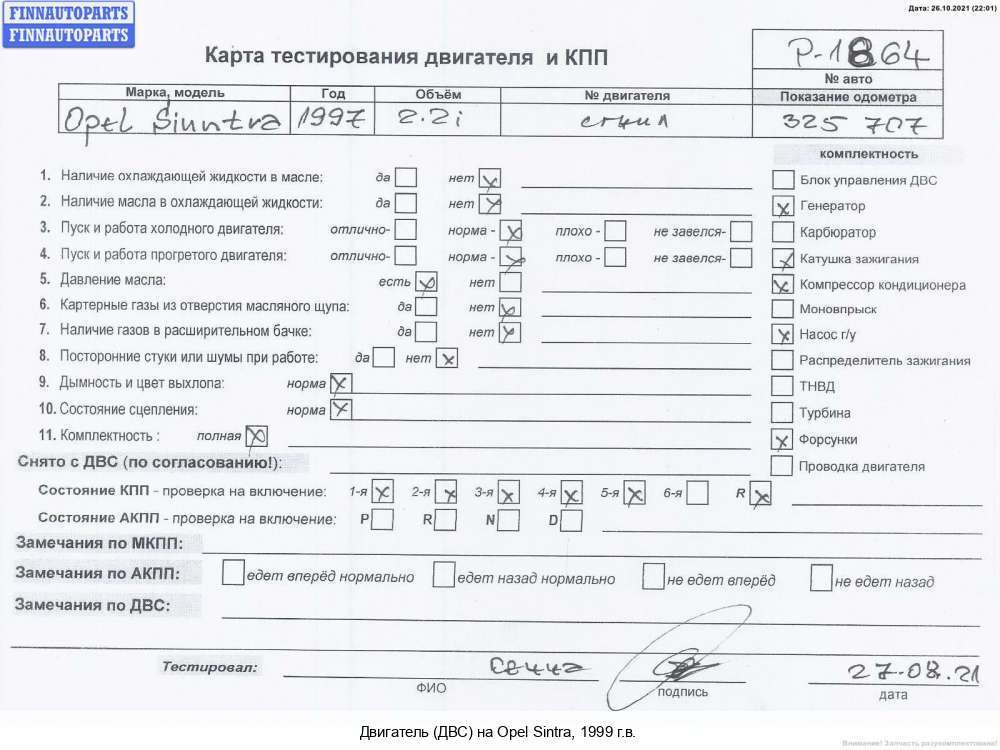 FINNAUTOPARTS
FINNAUTOPARTS
Дата: 26.10.2021 (22:01)
Карта тестирования двигателя и КПП
P-1864
№ авто
Марка, модель Год Объём № двигателя Показание одометра
Opel Sinntra 1997 2.2i 325 707
комплектность
1. Наличие охлаждающей жидкости в масле: да нет
Блок управления ДВС
2. Наличие масла в охлаждающей жидкости: да нет
Генератор
3. Пуск и работа холодного двигателя: отлично- норма - плохо - не завелся-
Карбюратор
4. Пуск и работа прогретого двигателя: отлично- норма - плохо - не завелся-
Катушка зажигания
5. Давление масла: есть нет
Компрессор кондиционера
6. Картерные газы из отверстия масляного щупа: да нет
Моновпрыск
7. Наличие газов в расширительном бачке: да нет
Насос г/у
8. Посторонние стуки или шумы при работе: да нет
Распределитель зажигания
9. Дымность и цвет выхлопа: норма
ТНВД
10. Состояние сцепления: норма
Турбина
11. Комплектность : полная
Форсунки
Снято с ДВС (по согласованию!):
Проводка двигателя
Состояние КПП - проверка на включение: 1-я 2-я 3-я 4-я 5-я 6-я R
Состояние АКПП - проверка на включение: P R N D
Замечания по МКПП:
Замечания по АКПП: едет вперёд нормально едет назад нормально не едет вперёд не едет назад
Замечания по ДВС:
Тестировал: 27-08.21
ФИО подпись дата
Двигатель (ДВС) на Opel Sintra, 1999 г.в.
Внимание! Запчасть разукомплектована!